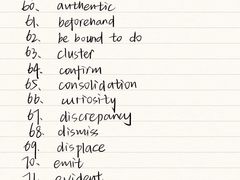 60. authentic
61. beforehand
62. be bound to do
63. cluster
64. confirm
65. consolidation
66. curiosity
67. discrepancy
68. dismiss
69. displace
70. emit
71. evident